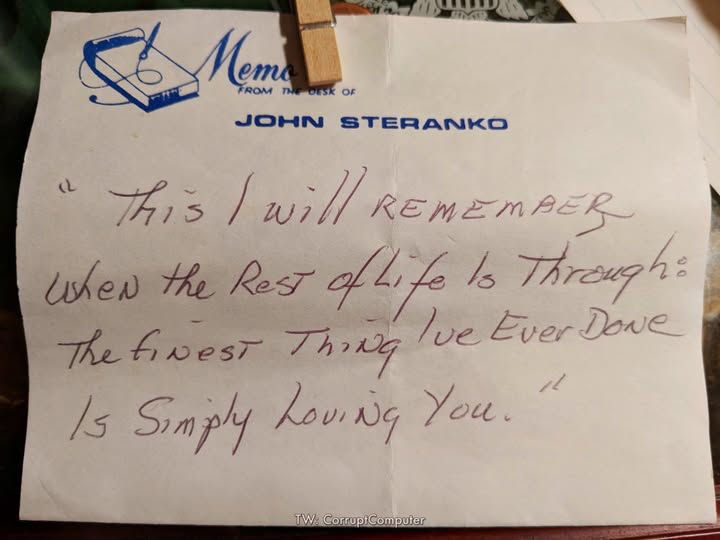 Memo
FROM THE DESK OF
JOHN STERANKO
" This I will REMEMBER
when the Rest of Life Is Through:
The finest Thing I've Ever Done
Is Simply Loving You. "
TW: CorruptComputer